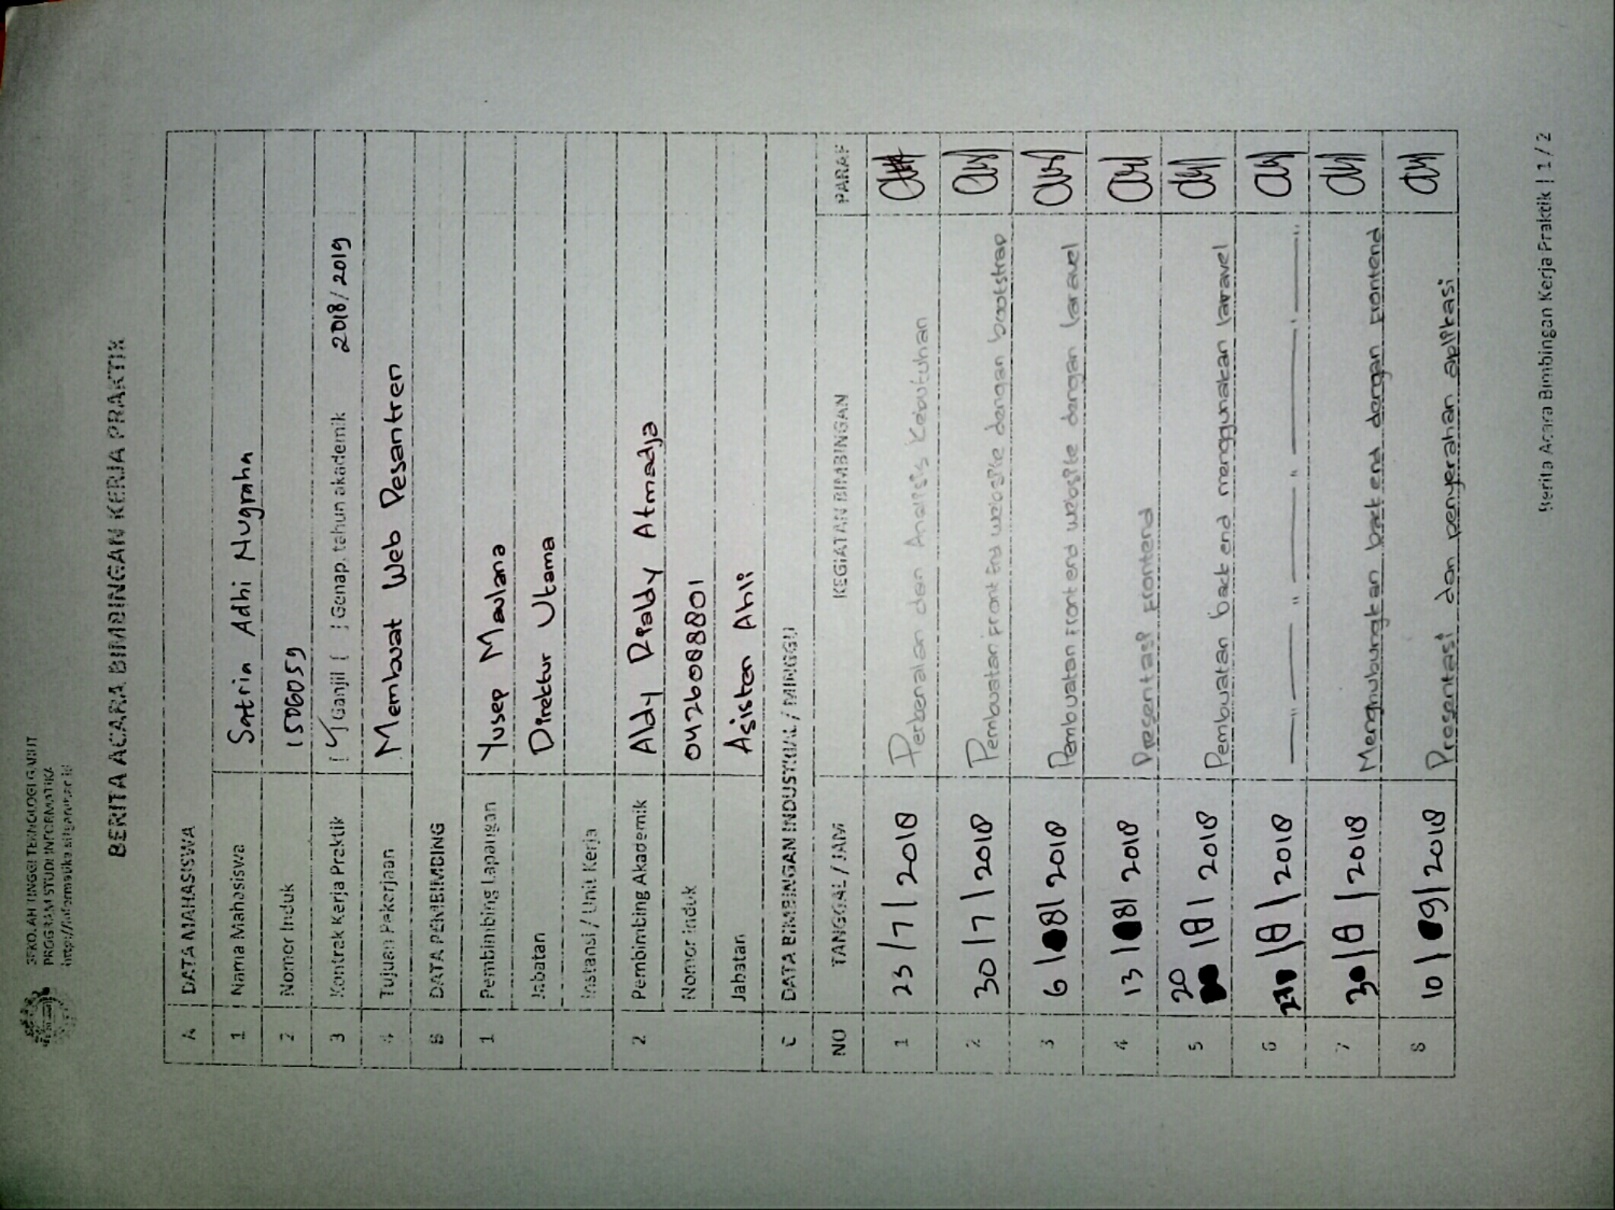 SEKOLAH TINGGI TEKNOLOGI GARUT
PROGRAM STUDI INFORMATIKA
BERITA ACARA BIMBINGAN KERJA PRAKTIK
A DATA MAHASISWA
1 Nama Mahasiswa Satria Adhi Nugraha
2 Nomor Induk 1506059
3 Kontrak Kerja Praktik [√] Ganjil [ ] Genap, tahun akademik 2018/2019
4 Tujuan Pekerjaan Membuat Web Pesantren
B DATA PEMBIMBING
1 Pembimbing Lapangan Yusep Maulana
Jabatan Direktur Utama
Instansi / Unit Kerja
2 Pembimbing Akademik Aldy Rialdy Atmadja
Nomor Induk 0426088801
Jabatan Asisten Ahli
C DATA BIMBINGAN INDUSTRIAL / MINGGU
NO TANGGAL / JAM KEGIATAN BIMBINGAN PARAF
1 23/7/2018 Perkenalan dan Analisis Kebutuhan
2 30/7/2018 Pembuatan Front End website dengan bootstrap
3 6/08/2018 Pembuatan Front end website dengan laravel
4 13/08/2018 Presentasi Frontend
5 20/8/2018 Pembuatan back end menggunakan laravel
6 /8/2018 — " — " — " —
7 30/8/2018 Menghubungkan back end dengan Frontend
8 10/09/2018 Presentasi dan penyerahan aplikasi
Berita Acara Bimbingan Kerja Praktik | 1 / 2